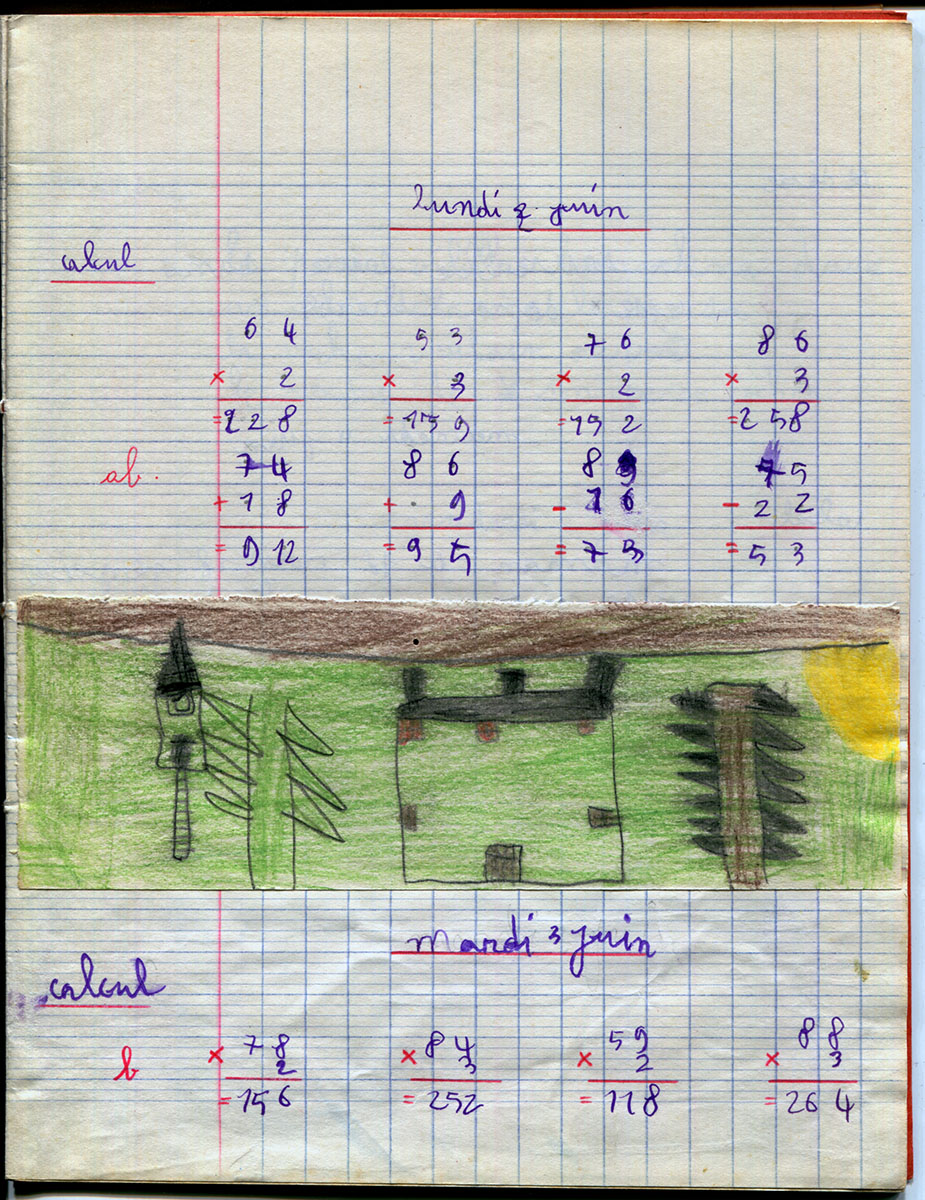 lundi 2 juin
calcul
64 53 76 86
× 2 × 3 × 2 × 3
=128 =159 =152 =258
ab.
74 86 89 75
+18 + 9 - 16 - 22
= 9 12 = 95 = 73 = 53
mardi 3 juin
calcul
b
78 84 59 88
× 2 × 3 × 2 × 3
=156 =252 =118 =264